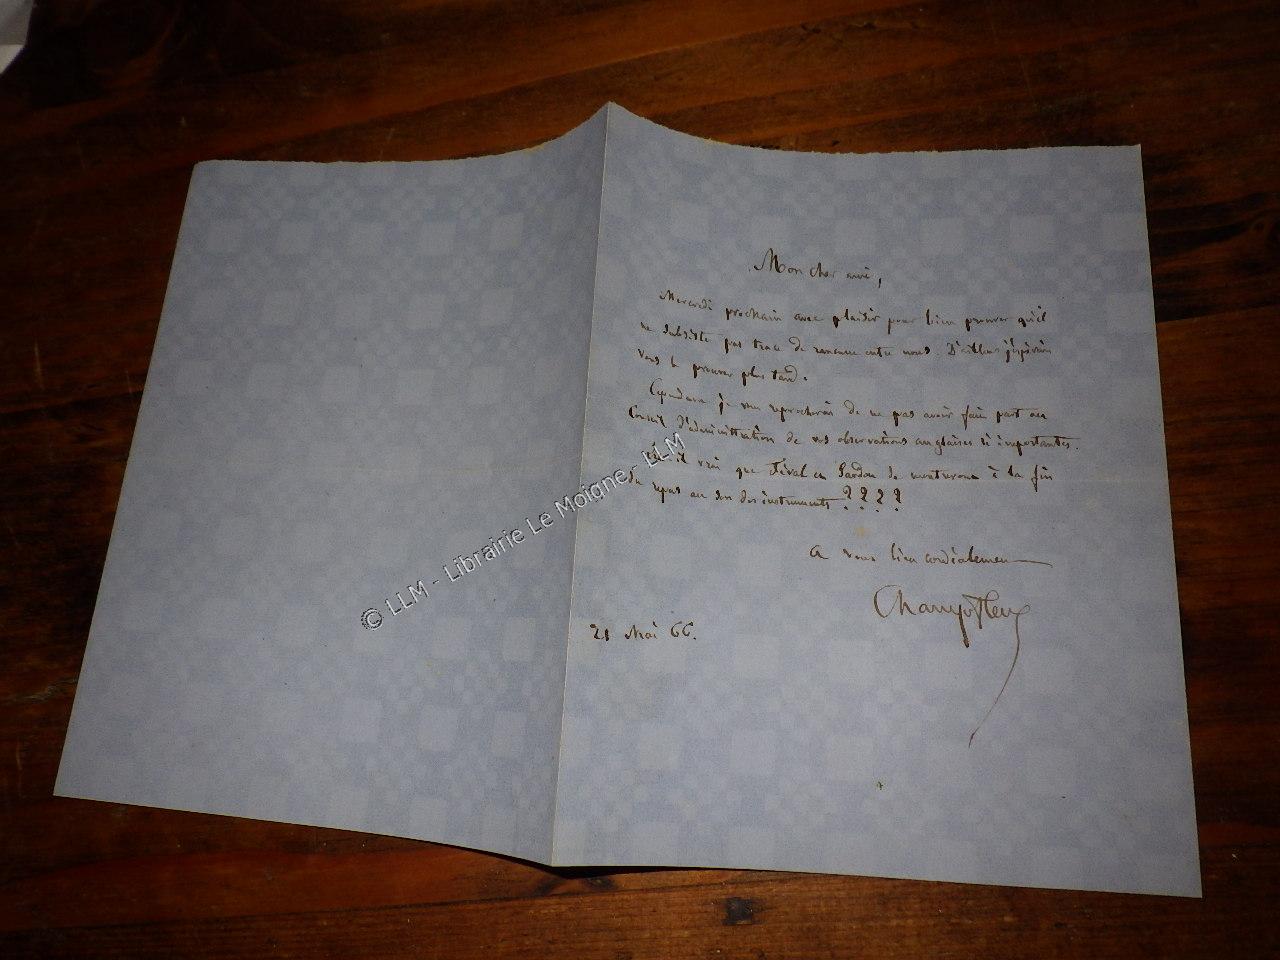 Mon cher ami,
Mercredi prochain avec plaisir pour bien prouver qu'il
ne subsiste pas trace de rancune entre nous. D'ailleurs j'espérais
vous le prouver plus tard.
Cependant je vous reprocherai de ne pas avoir fait part au
Conseil d'administration de vos observations anglaises si importantes.
Est-il vrai que Féval et Sardou se montreront à la fin
du repas au son des instruments ????
A vous bien cordialement
Champfleury
21 Mai 66.
© LLM - Librairie Le Moigne - LLM